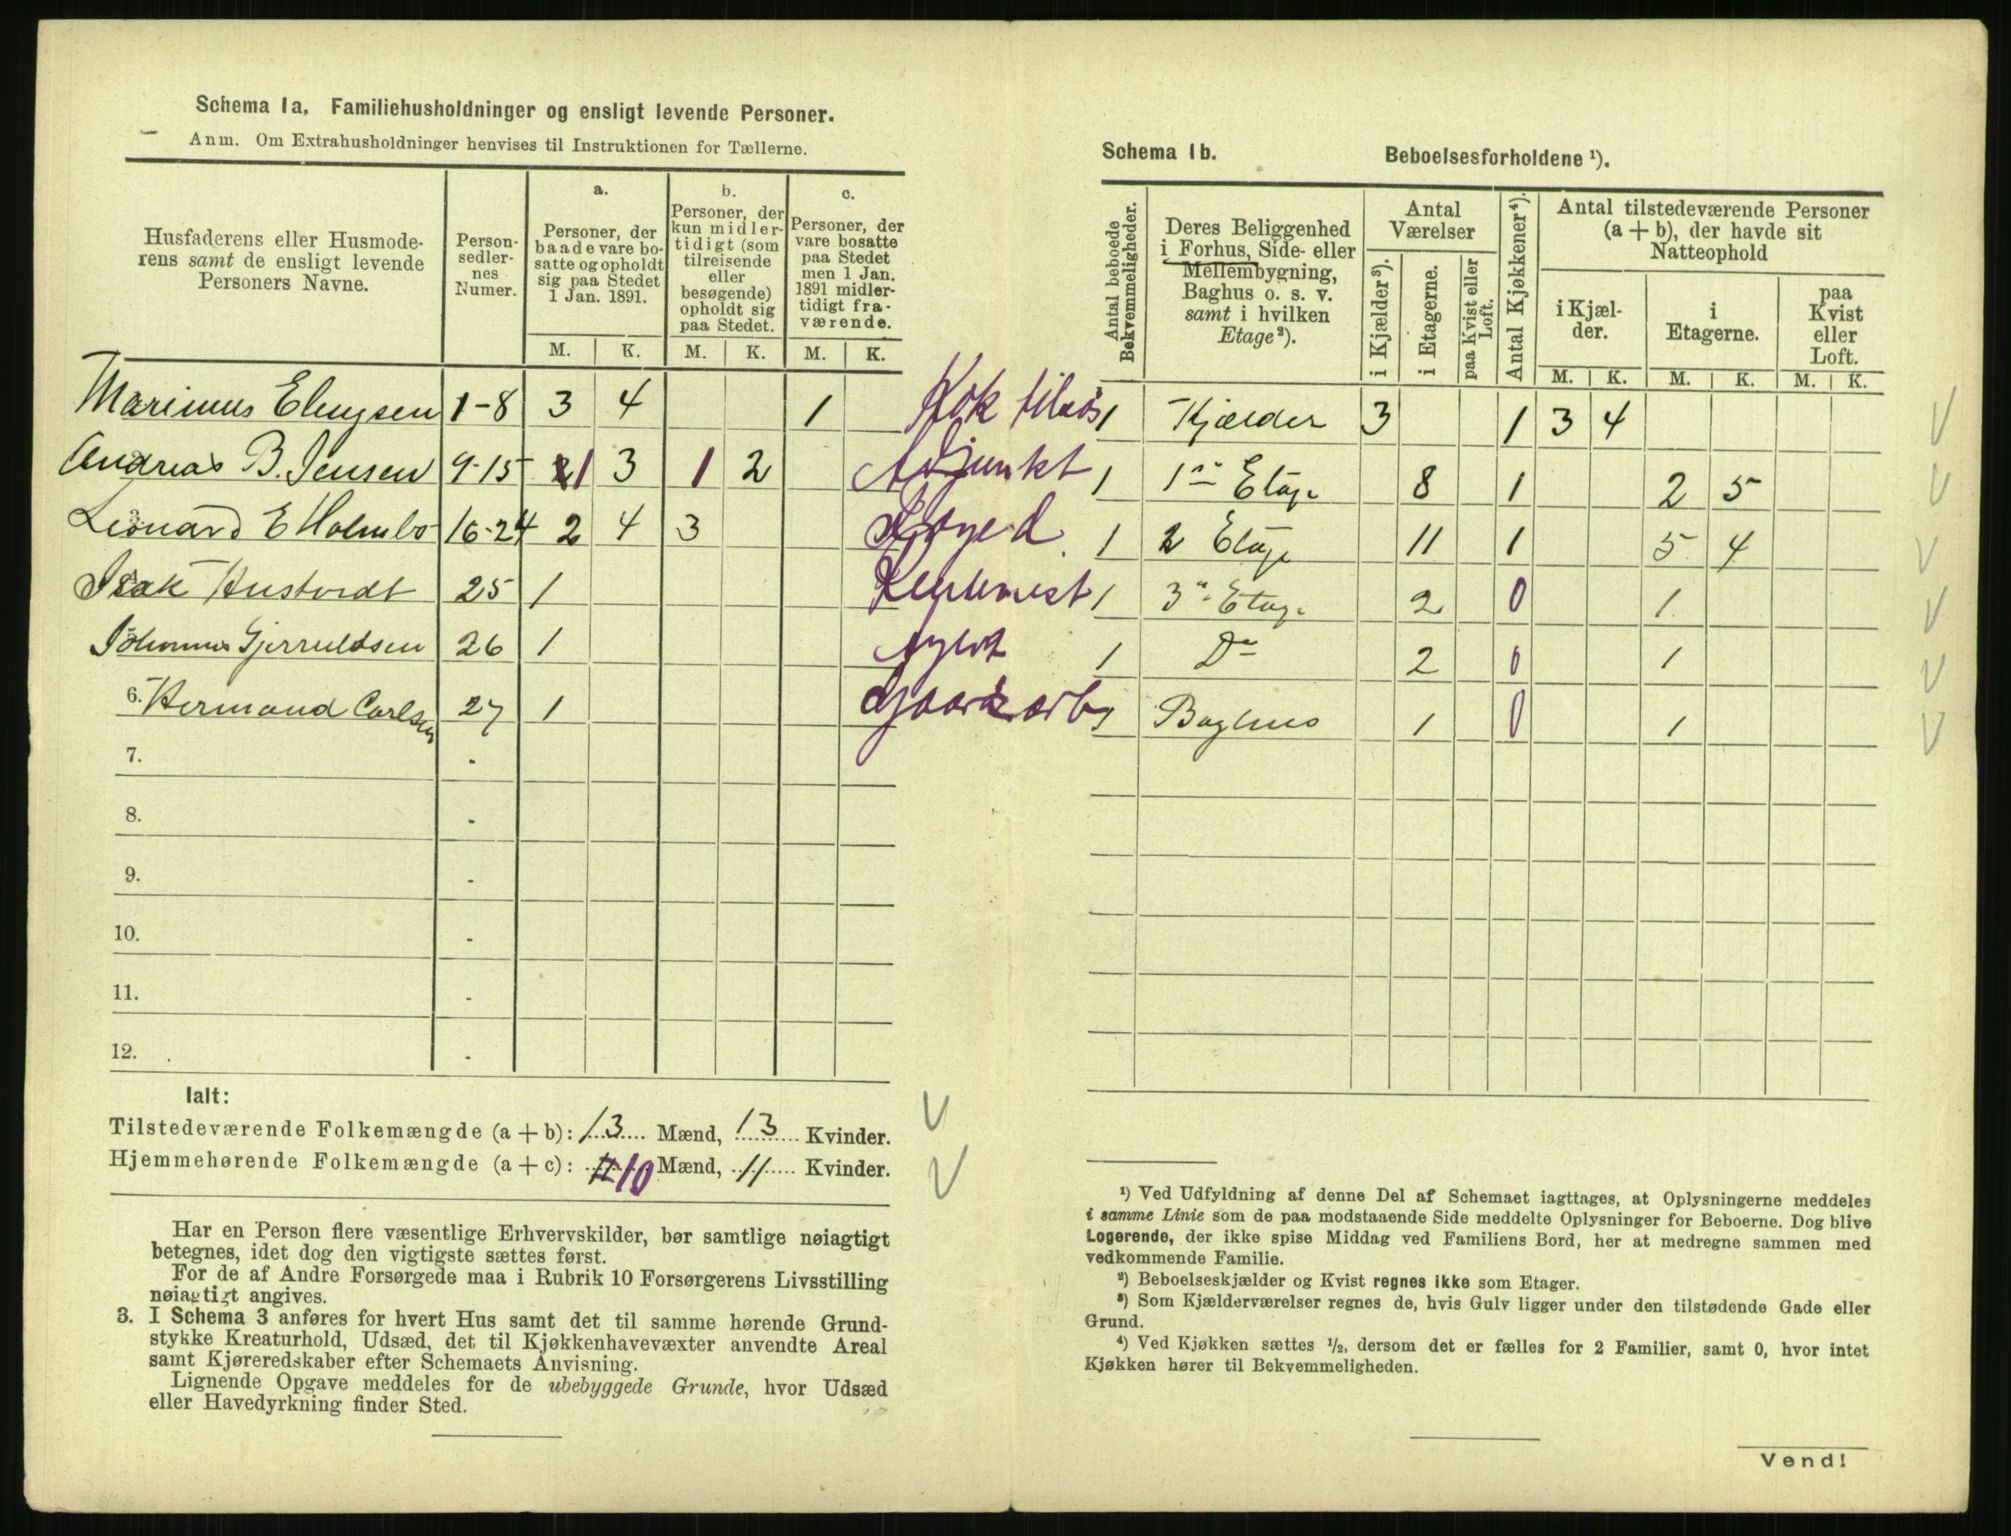 Schema 1a. Familiehusholdninger og ensligt levende Personer.
Anm. Om Extrahusholdninger henvises til Instruktionen for Tællerne.
Husfaderens eller Husmoderens samt de ensligt levende Personers Navne.
Personsedlernes Numer.
a. Personer, der baade vare bosatte og opholdt sig paa Stedet 1 Jan. 1891.
b. Personer, der kun midlertidigt (som tilreisende eller besøgende) opholdt sig paa Stedet.
c. Personer, der vare bosatte paa Stedet men 1 Jan. 1891 midlertidigt fraværende.
M. K. M. K. M. K.
Marinus 1-8 3 4 1 Kok
Andreas B. Jensen 9-15 1 3 1 2 Adjunkt
Leonard E Holmbo 16-24 2 4 3
Isak 25 1
26 1
6. Hermand Carlsen 27 1
7.
8.
9.
10.
11.
12.
Ialt:
Tilstedeværende Folkemængde (a + b): 13 Mænd, 13 Kvinder.
Hjemmehørende Folkemængde (a + c): 10 Mænd, 11 Kvinder.
Har en Person flere væsentlige Erhvervskilder, bør samtlige nøiagtigt
betegnes, idet dog den vigtigste sættes først.
For de af Andre Forsørgede maa i Rubrik 10 Forsørgerens Livsstilling
nøiagtigt angives.
3. I Schema 3 anføres for hvert Hus samt det til samme hørende Grund-
stykke Kreaturhold, Udsæd, det til Kjøkkenhavevæxter anvendte Areal
samt Kjøreredskaber efter Schemaets Anvisning.
Lignende Opgave meddeles for de ubebyggede Grunde, hvor Udsæd
eller Havedyrkning finder Sted.
Schema 1b. Beboelsesforholdene ¹).
Antal beboede Bekvemmeligheder.
Deres Beliggenhed i Forhus, Side- eller Mellembygning, Baghus o. s. v. samt i hvilken Etage²).
Antal Værelser
i Kjælder³).
i Etagerne.
paa Kvist eller Loft.
Antal Kjøkkener⁴).
Antal tilstedeværende Personer (a + b), der havde sit Natteophold
i Kjælder.
i Etagerne.
paa Kvist eller Loft.
M. K. M. K. M. K.
1 Kjælder 3 1 3 4
1 1ste Etage 8 1 2 5
1 2 Etage 11 1 5 4
1 3die Etage 2 0 1
1 Do 2 0 1
1 Baghus 1 0 1
¹) Ved Udfyldning af denne Del af Schemaet iagttages, at Oplysningerne meddeles
i samme Linie som de paa modstaaende Side meddelte Oplysninger for Beboerne. Dog blive
Logerende, der ikke spise Middag ved Familiens Bord, her at medregne sammen med
vedkommende Familie.
²) Beboelseskjælder og Kvist regnes ikke som Etager.
³) Som Kjælderværelser regnes de, hvis Gulv ligger under den tilstødende Gade eller
Grund.
⁴) Ved Kjøkken sættes ½, dersom det er fælles for 2 Familier, samt 0, hvor intet
Kjøkken hører til Bekvemmeligheden.
Vend!